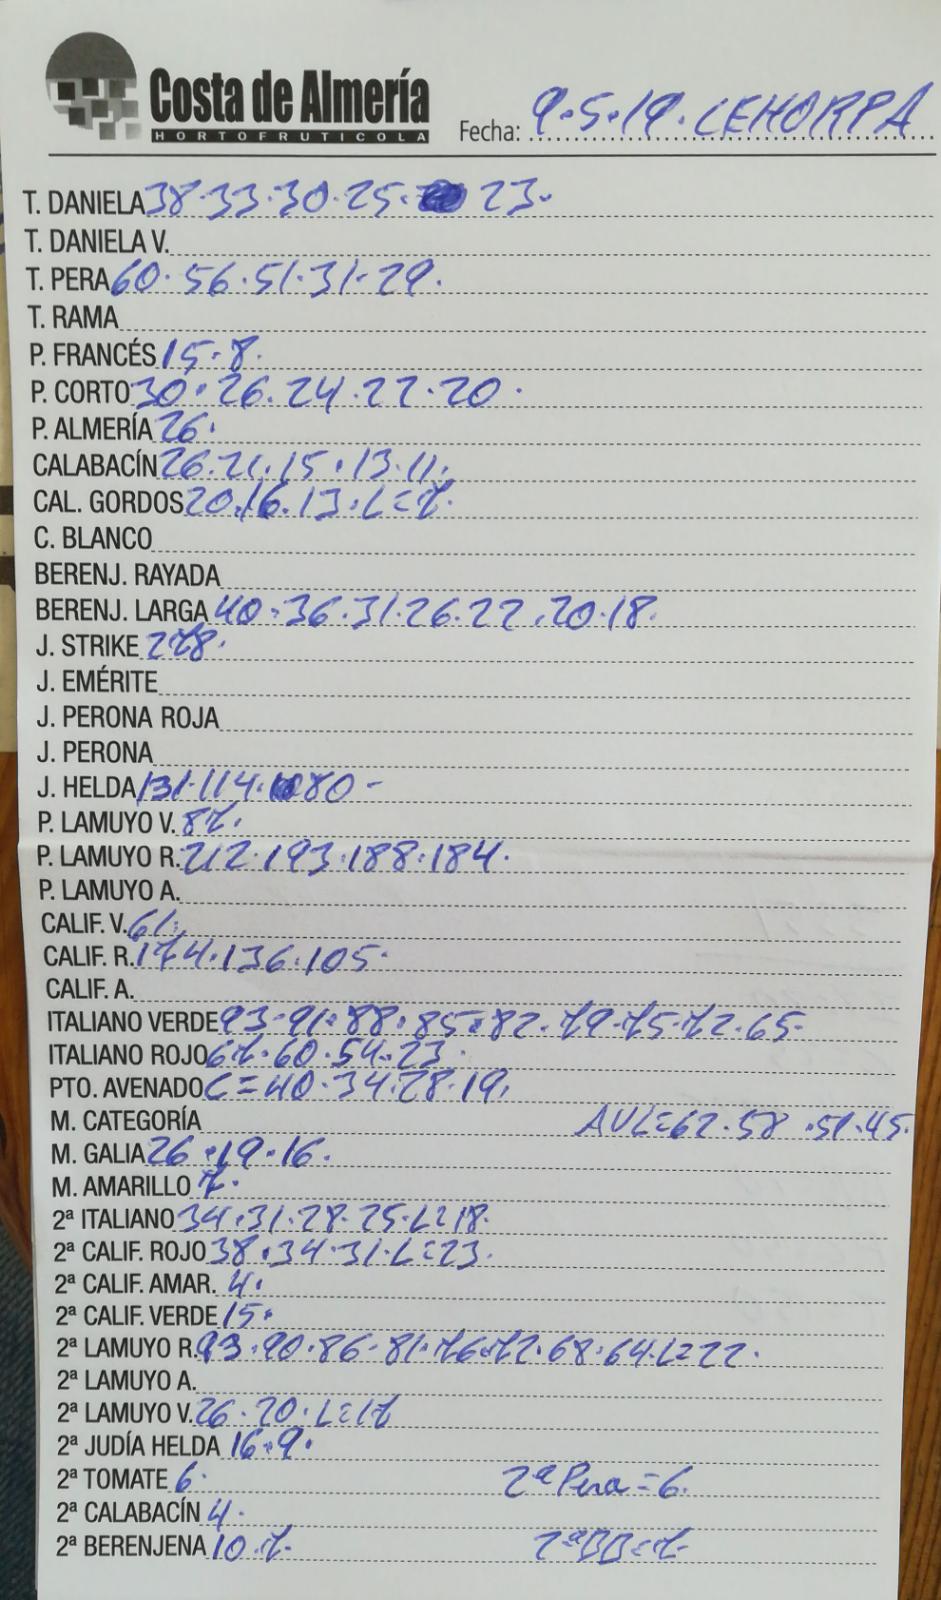 Costa de Almería
HORTOFRUTICOLA
Fecha: 9.5.19. CEHORPA
T. DANIELA 38.33.30.25. 23.
T. DANIELA V.
T. PERA 60.56.51.31.29.
T. RAMA
P. FRANCÉS 15.8.
P. CORTO 30.26.24.22.20.
P. ALMERÍA 26.
CALABACÍN 26.21.15.13.11.
CAL. GORDOS 20.16.13.L=7.
C. BLANCO
BERENJ. RAYADA
BERENJ. LARGA 40.36.31.26.22.20.18.
J. STRIKE 278.
J. EMÉRITE
J. PERONA ROJA
J. PERONA
J. HELDA 131.114. 80-
P. LAMUYO V. 87.
P. LAMUYO R. 212.193.188.184.
P. LAMUYO A.
CALIF. V. 61.
CALIF. R. 174.136.105.
CALIF. A.
ITALIANO VERDE 93.91.88.85.82.79.75.72.65.
ITALIANO ROJO 67.60.54.23.
PTO. AVENADO C=40.34.28.19.
M. CATEGORÍA AVL=62.58.51.45.
M. GALIA 26.19.16.
M. AMARILLO 7.
2ª ITALIANO 34.31.28.25.L=18.
2ª CALIF. ROJO 38.34.31.L=23.
2ª CALIF. AMAR. 4.
2ª CALIF. VERDE 15.
2ª LAMUYO R. 93.90.86.81.76.72.68.64.L=22.
2ª LAMUYO A.
2ª LAMUYO V. 26.20.L=17
2ª JUDÍA HELDA 16.9.
2ª TOMATE 6. 2ª Pera=6.
2ª CALABACÍN 4.
2ª BERENJENA 10.7. 2ªBB=7.